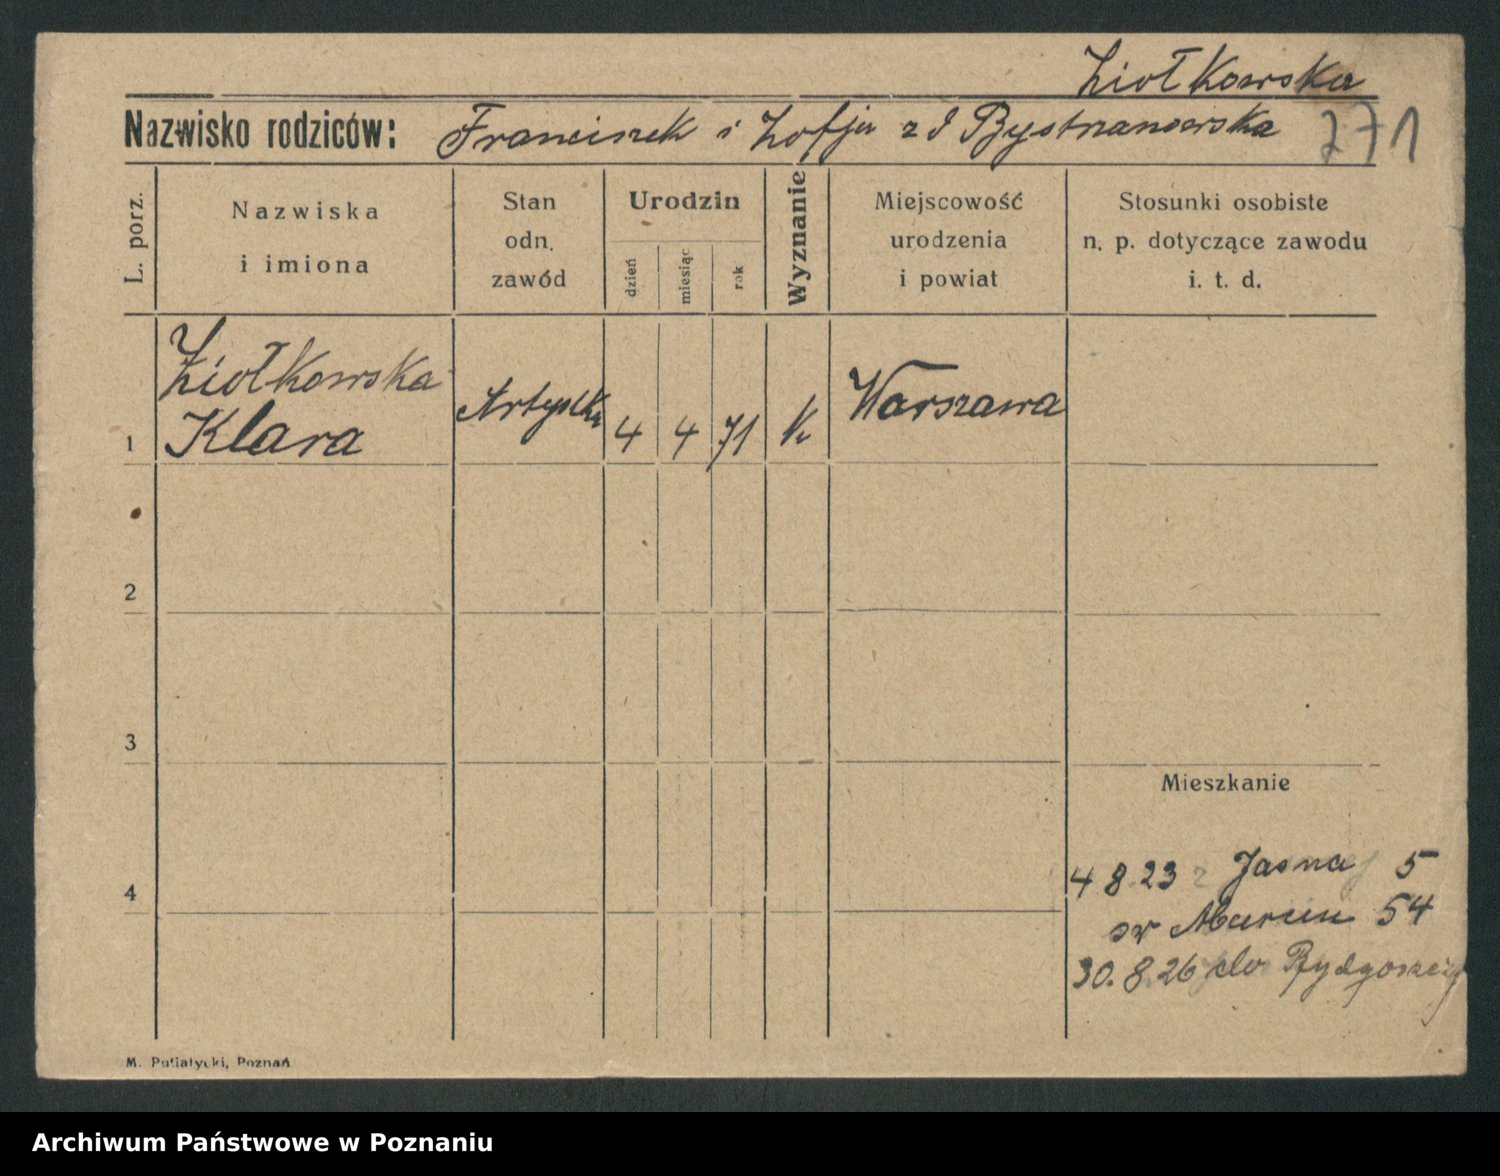 Ziołkowska
Nazwisko rodziców: Franciszek i Zofja z d Bystrzanowska 271
L. porz.
Nazwiska
i imiona
Stan
odn.
zawód
Urodzin
dzień
miesiąc
rok
Wyznanie
Miejscowość
urodzenia
i powiat
Stosunki osobiste
n. p. dotyczące zawodu
i. t. d.
Ziołkowska
1 Klara Artystka 4 4 71 k Warszawa
2
3
Mieszkanie
4
4 8 23 z Jasna 5
św Marcin 54
30.8.26 do Bydgoszczy
M. Putiatycki, Poznań
Archiwum Państwowe w Poznaniu